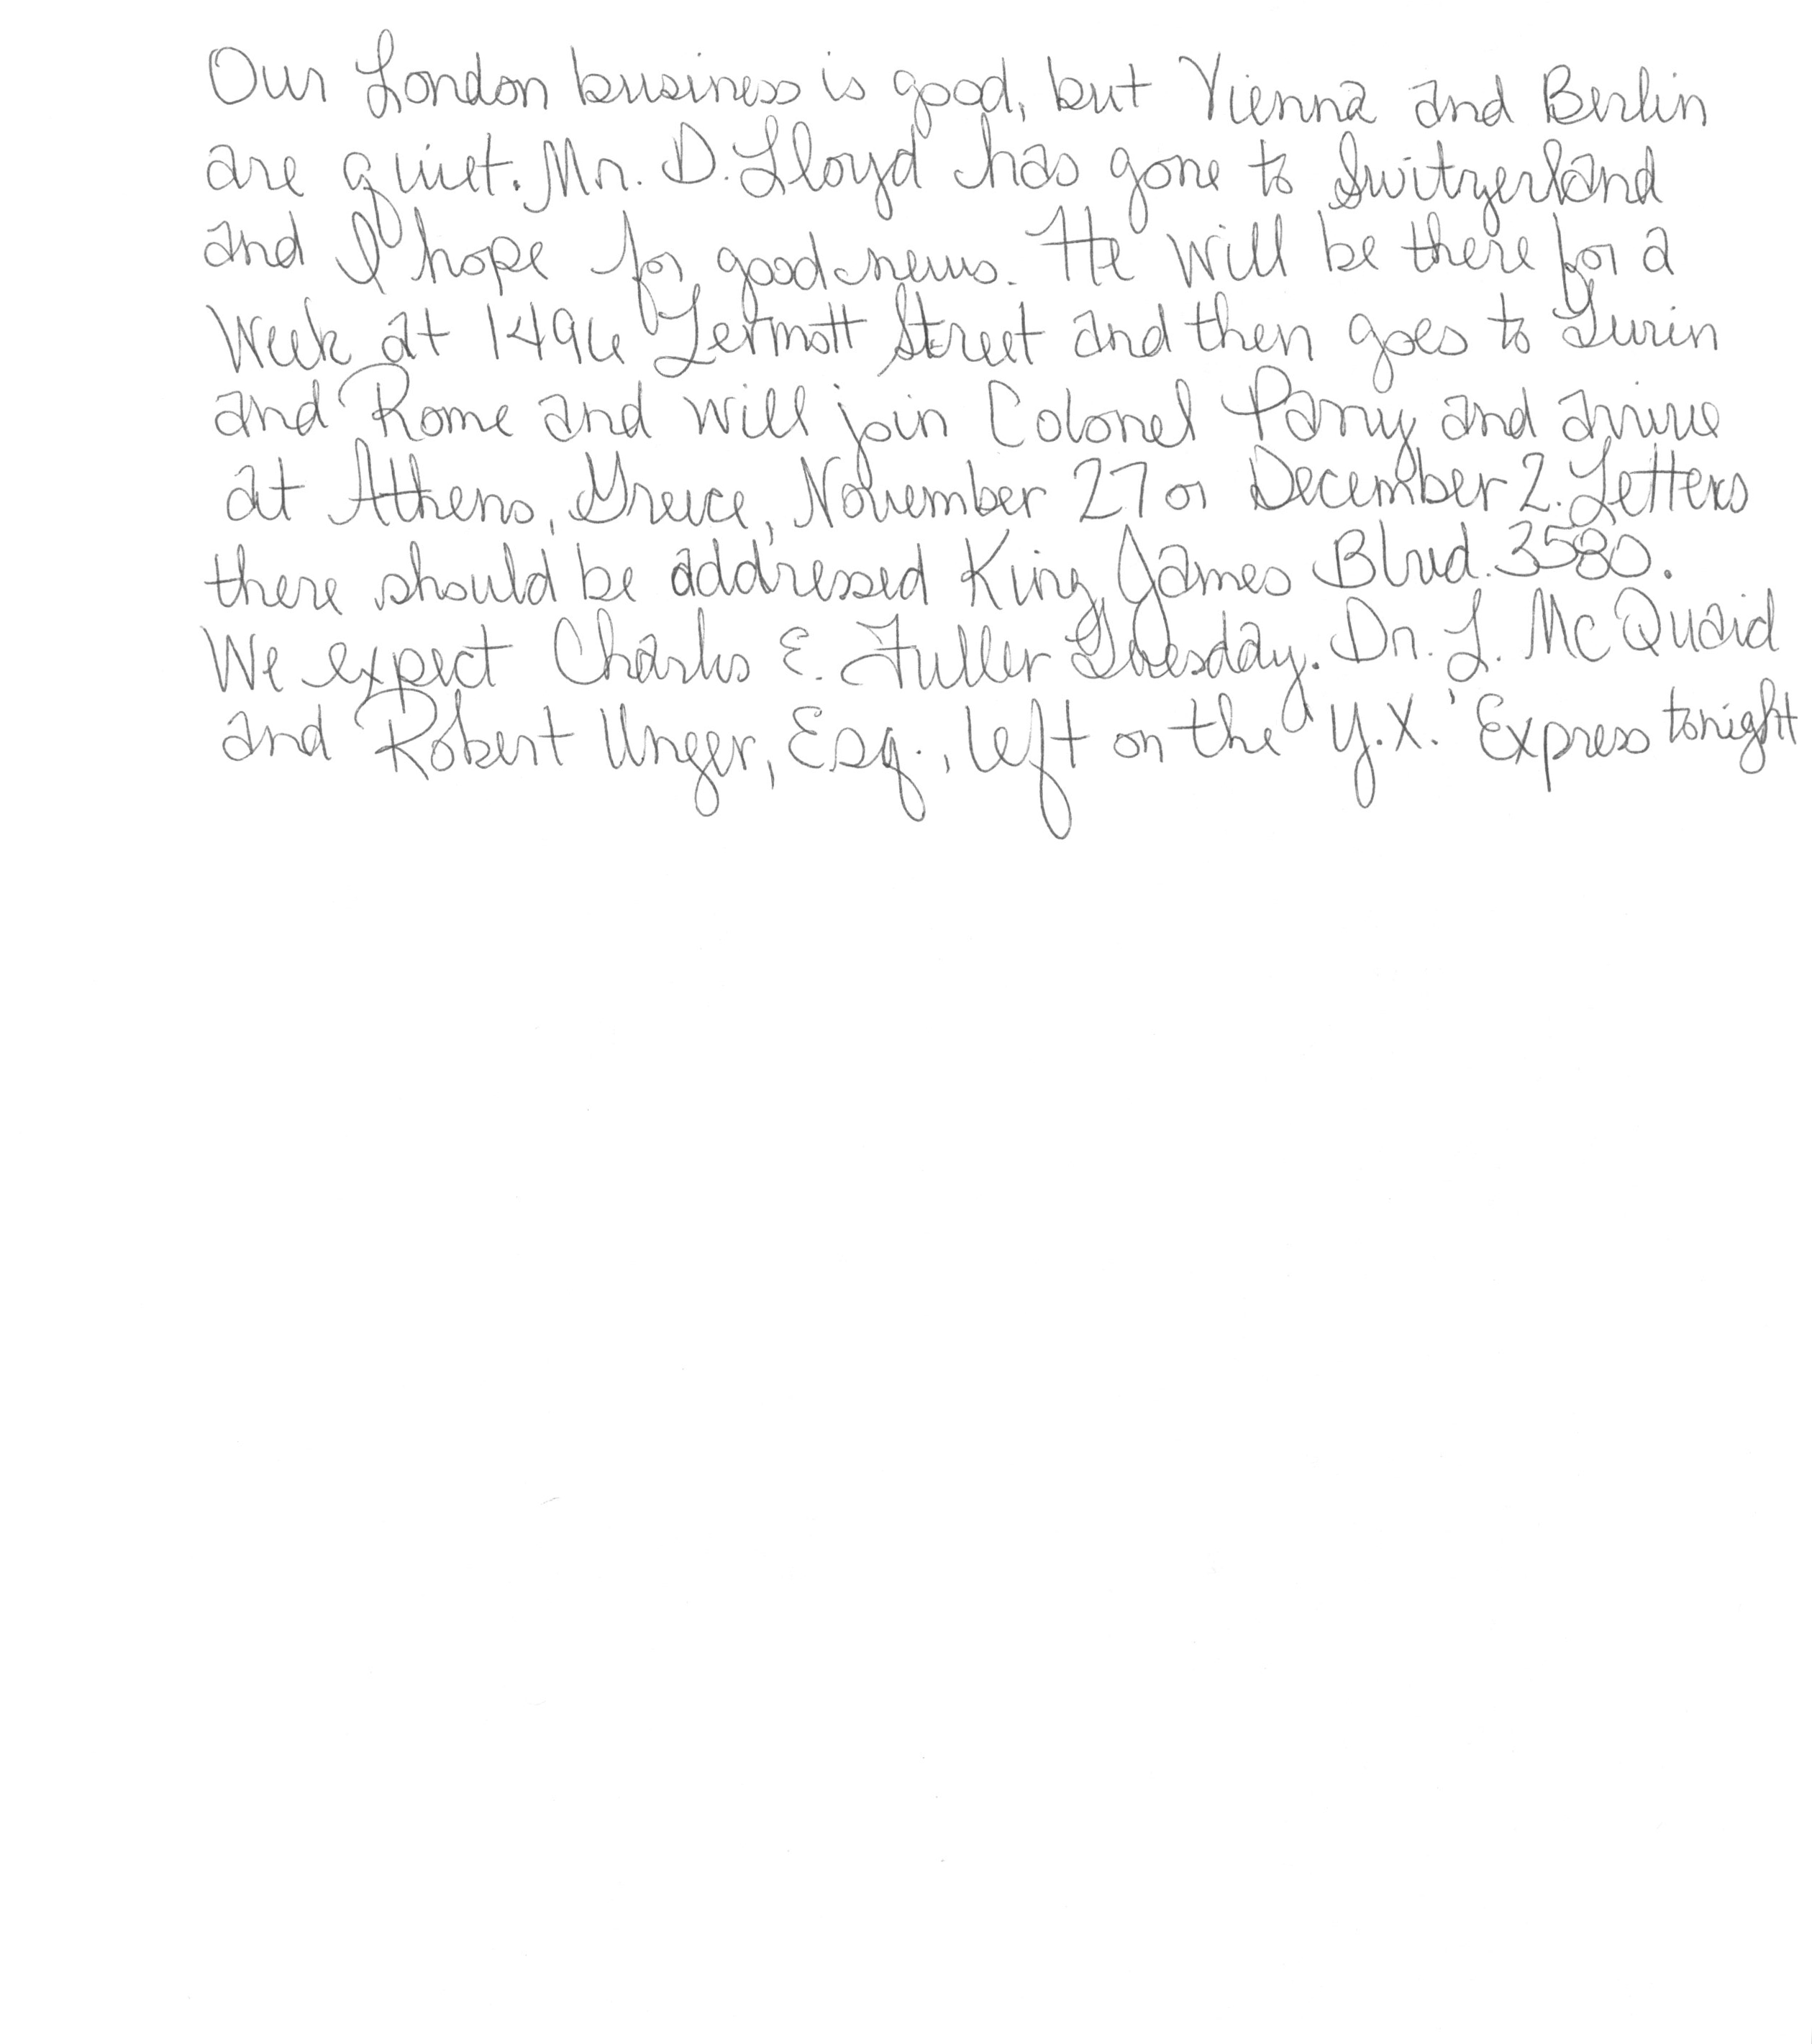 Our London business is good, but Vienna and Berlin
are quiet. Mr. D. Lloyd has gone to Switzerland
and I hope for good news. He will be there for a
week at 1496 Zermott Street and then goes to Turin
and Rome and will join Colonel Parry and arrive
at Athens, Greece, November 27 or December 2. Letters
there should be addressed King James Blvd. 3580.
We expect Charles E. Fuller Tuesday. Dr. L. McQuaid
and Robert Unger, Esq., left on the 'Y.X.' Express tonight